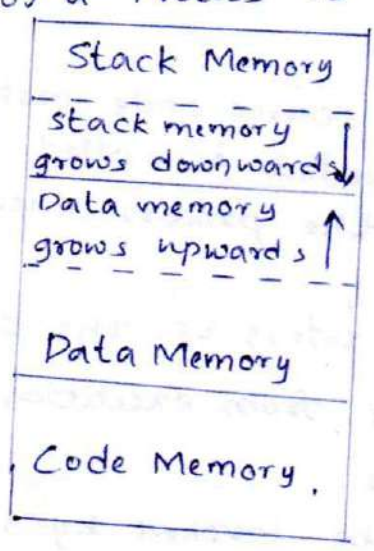 Stack Memory
stack memory
grows downwards
Data memory
grows upwards
Data Memory
Code Memory.